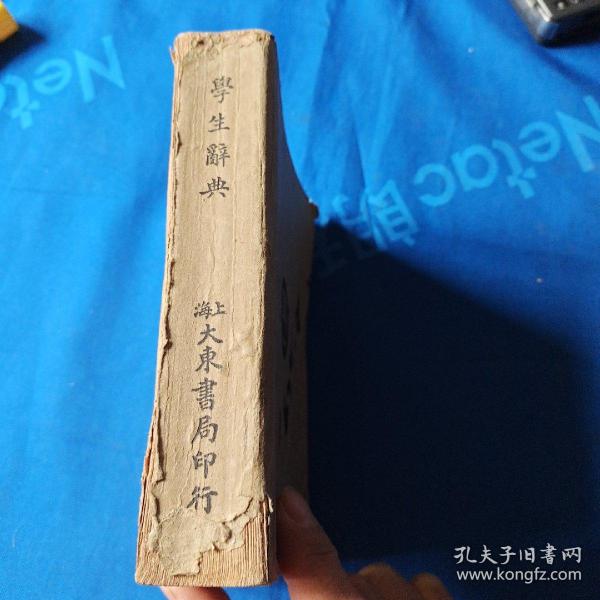 學生辭典
上海
大東書局印行
Netac
Netac 朗
孔夫子旧書网
www.kongfz.com